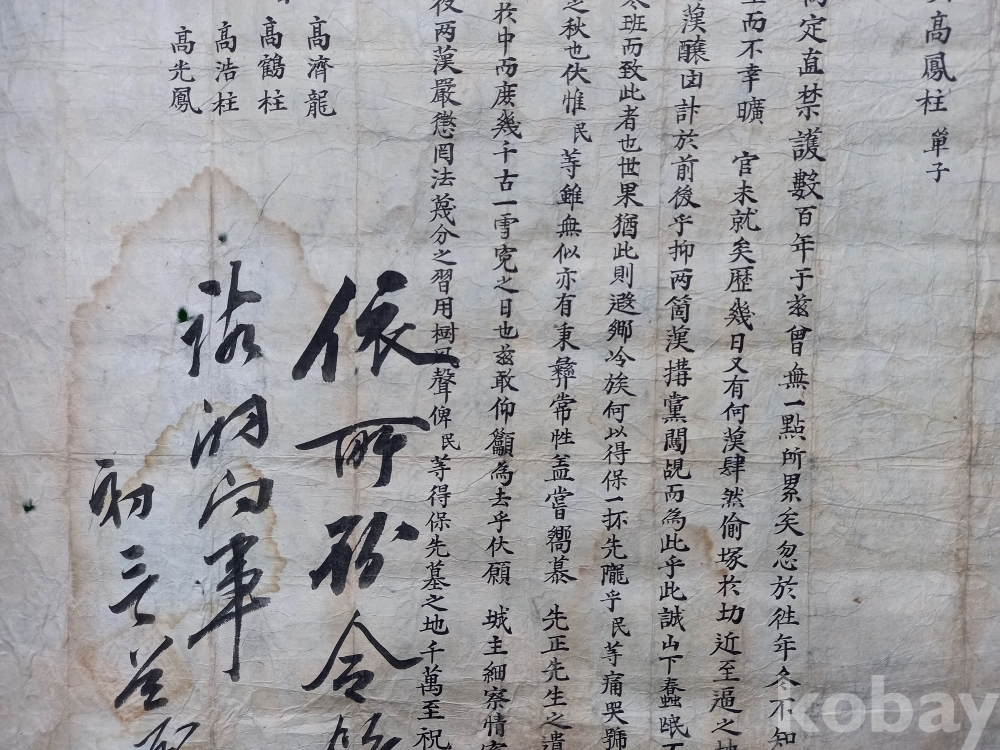 高鳳柱 單子
定直禁護數百年于玆曾無一點所累矣忽於徃年冬不知
而不幸曠 官未就矣歷幾日又有何漢肆然偷塚於切近至逼之地
漢釀凶計於前後乎抑兩箇漢搆黨闖覘而為此乎此誠山下蠢氓
班而致此者也世果猶此則遐鄉冷族何以得保一抔先隴乎民等痛哭號
之秋也伏惟民等雖無似亦有秉彝常性盖嘗嚮慕 先正先生之遺
於中而庶幾千古一雪寃之日也玆敢仰籲為去乎伏願 城主細察情
後兩漢嚴懲罔法蔑分之習用樹風聲俾民等得保先墓之地千萬至祝
高濟龍
高鶴柱
高浩柱
高光鳳
依所
令
事
初三日
kobay